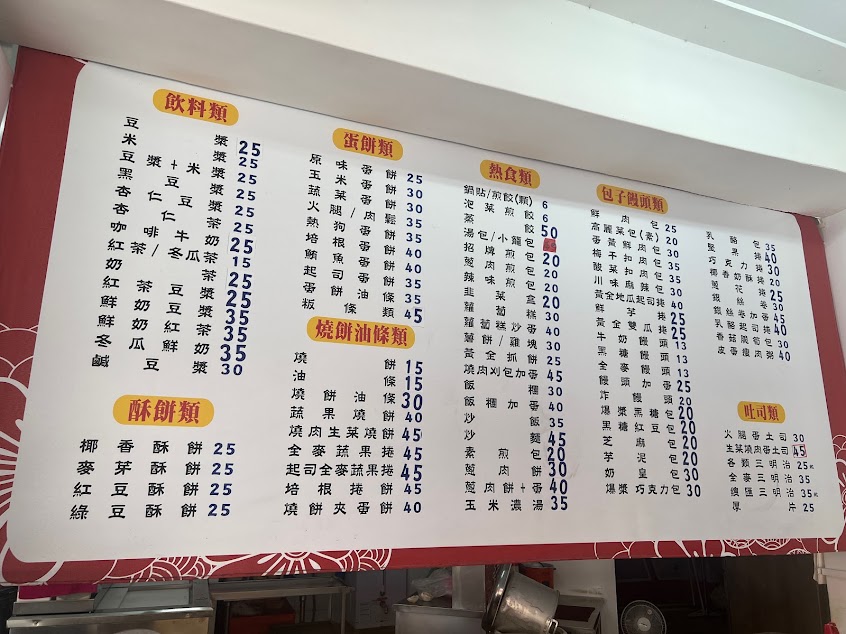 飲料類
豆漿 25
米漿 25
豆漿+米漿 25
黑豆漿 25
杏仁茶 25
杏仁奶 25
咖啡牛奶 25
紅茶/冬瓜茶 15
奶茶 25
紅茶豆漿 25
鮮奶豆漿 35
鮮奶紅茶 35
冬瓜鮮奶 35
鹹豆漿 30
酥餅類
椰香酥餅 25
麥芽酥餅 25
紅豆酥餅 25
綠豆酥餅 25
蛋餅類
原味蛋餅 25
玉米蛋餅 30
蔬菜蛋餅 30
火腿/肉鬆 35
熱狗蛋餅 35
培根蛋餅 40
鮪魚蛋餅 40
起司蛋餅 35
蛋餅油條 35
粄條類 45
燒餅油條類
燒餅 15
油條 15
燒餅油條 30
蔬果燒餅 40
燒肉生菜燒餅 45
全麥蔬果捲 45
起司全麥蔬果捲 45
培根捲餅 45
燒餅夾蛋餅 40
熱食類
鍋貼/煎餃(顆) 6
泡菜煎餃 6
蒸餃 50
湯包/小籠包
招牌煎包 20
蔥肉煎包 20
辣味煎包 20
韭菜盒 20
蘿蔔糕 30
蘿蔔糕炒蛋 40
薯餅/雞塊 30
黃金抓餅 25
燒肉刈包加蛋 45
飯糰 30
飯糰加蛋 40
炒飯 35
炒麵 45
素煎包 20
蔥肉餅 30
蔥肉餅+蛋 40
玉米濃湯 35
包子饅頭類
鮮肉包 25
高麗菜包(素) 20
蛋黃鮮肉包 30
梅干扣肉包 35
酸菜麻辣包 35
川味麻辣起司包 40
黃金地瓜 25
鮮奶饅頭 13
牛奶饅頭 13
黑糖饅頭 13
全麥饅頭
饅頭加蛋 25
炸饅頭 20
爆漿黑糖包 20
黑糖紅豆包 20
芝麻包 20
芋泥包 20
奶皇包 30
爆漿巧克力包 30
乳酪包 35
堅果捲 40
巧克力捲 30
椰香奶酥捲
蔥花捲 25
銀絲卷 30
銀絲卷加蛋 45
皮蛋瘦肉粥 40
吐司類
火腿蛋土司 30
生菜燒肉蛋土司 45
各類三明治 25
全麥三明治 35
總匯三明治 35
厚片 25